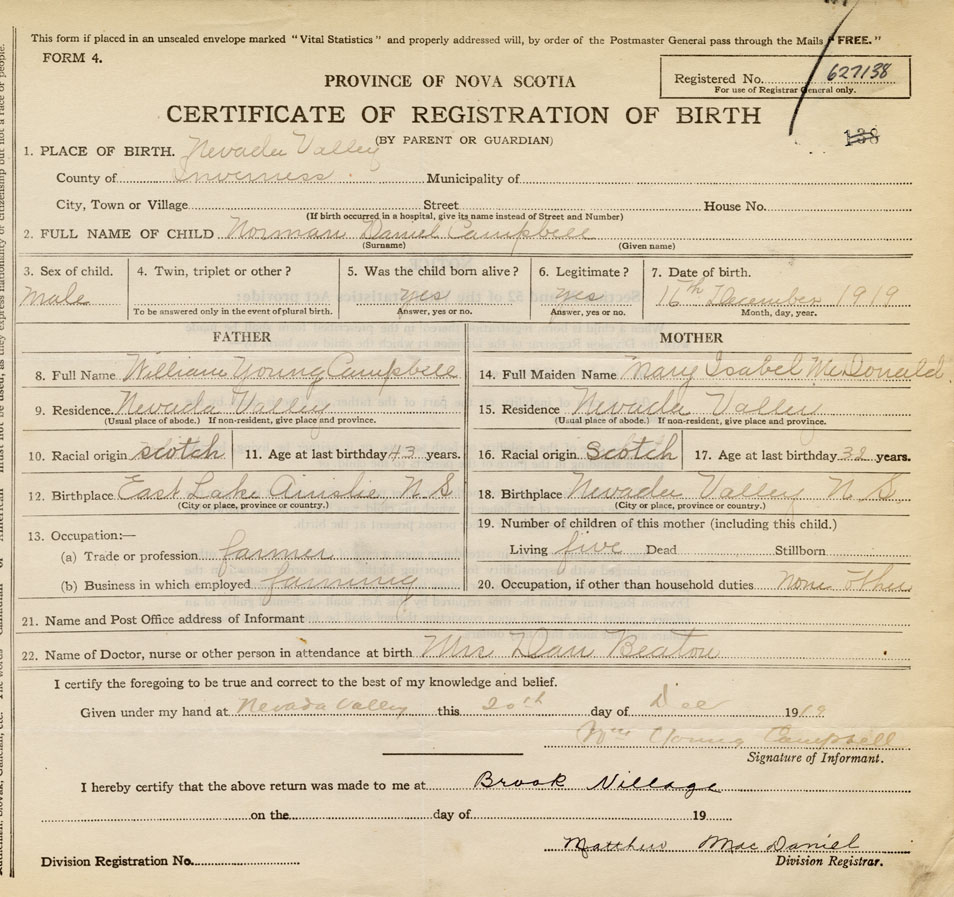 This form if placed in an unsealed envelope marked "Vital Statistics" and properly addressed will, by order of the Postmaster General pass through the Mails "FREE."
FORM 4.
Registered No. 627138
For use of Registrar General only.
PROVINCE OF NOVA SCOTIA
CERTIFICATE OF REGISTRATION OF BIRTH
138
(BY PARENT OR GUARDIAN)
1. PLACE OF BIRTH. Nevada Valley
County of Inverness Municipality of
City, Town or Village Street House No.
(If birth occurred in a hospital, give its name instead of Street and Number)
2. FULL NAME OF CHILD Norman Daniel Campbell
(Surname) (Given name)
3. Sex of child. 4. Twin, triplet or other? 5. Was the child born alive? 6. Legitimate? 7. Date of birth.
Male yes yes 16th December 1919
To be answered only in the event of plural birth. Answer, yes or no. Answer, yes or no. Month, day, year.
FATHER MOTHER
8. Full Name William Young Campbell 14. Full Maiden Name Mary Isabel McDonald
9. Residence. Nevada Valley 15. Residence Nevada Valley
(Usual place of abode.) If non-resident, give place and province. (Usual place of abode.) If non-resident, give place and province.
10. Racial origin scotch 11. Age at last birthday 43 years. 16. Racial origin Scotch 17. Age at last birthday 32 years.
12. Birthplace East Lake Ainslie N S 18. Birthplace Nevada Valley N S
(City or place, province or country.) (City or place, province or country.)
13. Occupation:— 19. Number of children of this mother (including this child.)
(a) Trade or profession farmer Living five Dead Stillborn
(b) Business in which employed farming 20. Occupation, if other than household duties None other
21. Name and Post Office address of Informant
22. Name of Doctor, nurse or other person in attendance at birth Mrs Dan Beaton
I certify the foregoing to be true and correct to the best of my knowledge and belief.
Given under my hand at Nevada Valley this 20th day of Dec 1919
Wm Young Campbell
Signature of Informant.
I hereby certify that the above return was made to me at Brook Village
on the day of 19
Matthew MacDaniel
Division Registration No. Division Registrar.